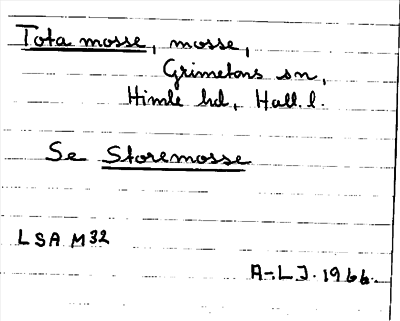 Tota mosse, mosse,
Grimetons sn,
Himle hd, Hall. l.
Se Storemosse
LSA M32
A-LJ. 1966.